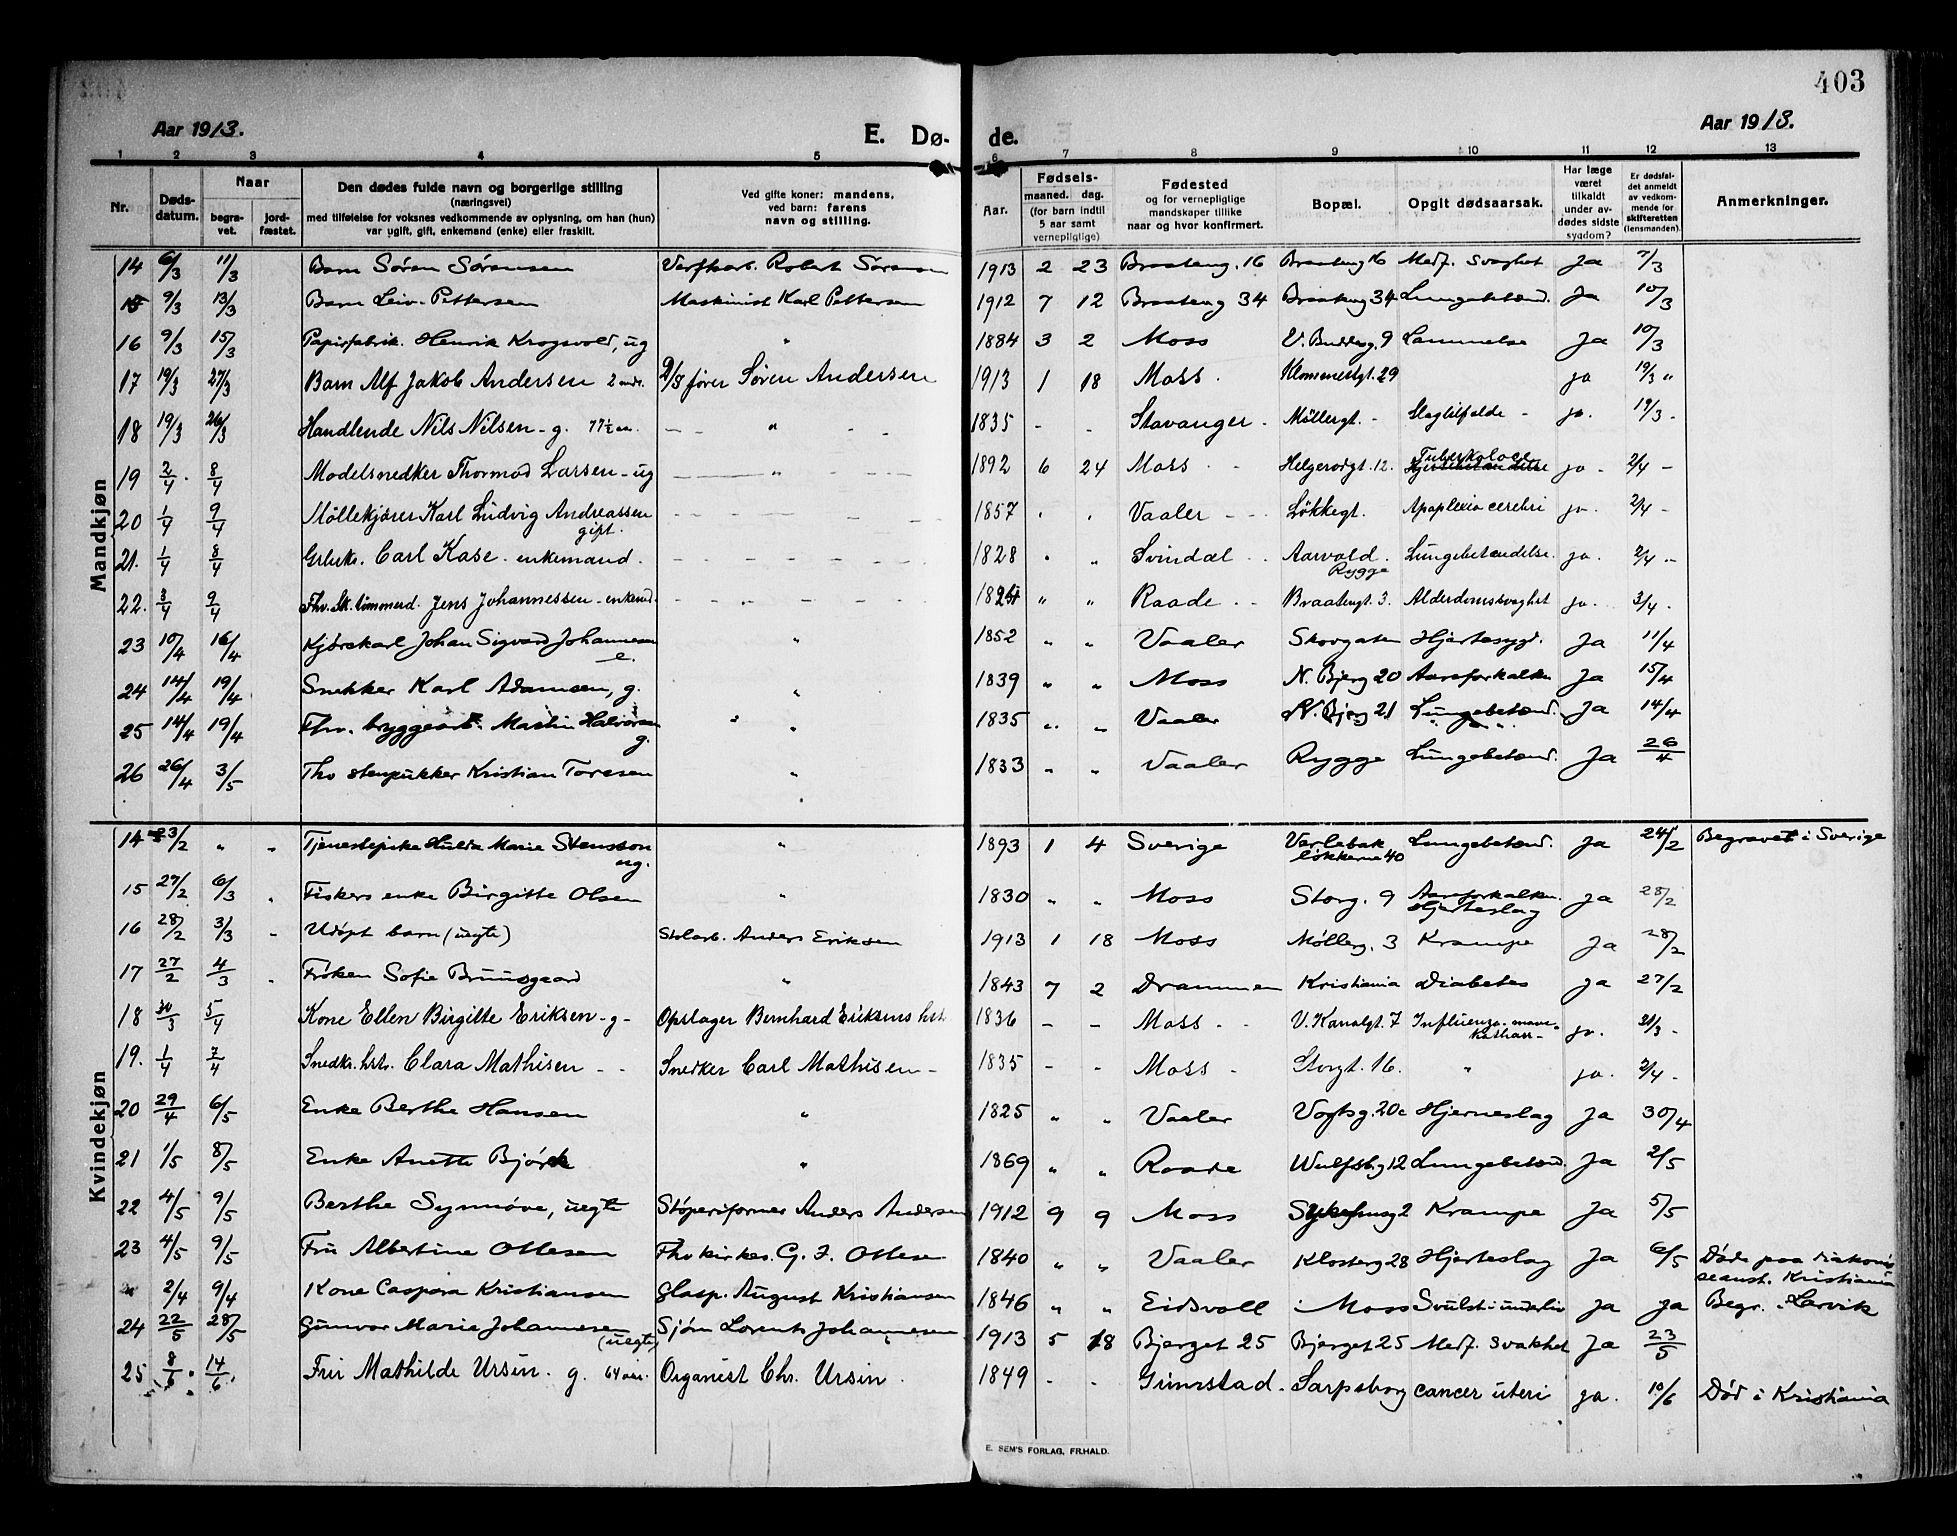 403
Aar 1913.
E. Dø- de.
Aar 1913.
1 2 3 4 5 6 7 8 9 10 11 12 13
Nr. Døds-datum. Naar begra-vet. jord-fæstet. Den dødes fulde navn og borgerlige stilling (næringsvei) med tilføielse for voksnes vedkommende av oplysning, om han (hun) var ugift, gift, enkemand (enke) eller fraskilt. Ved gifte koner: mandens, ved barn: farens navn og stilling. Aar. Fødsels- maaned. dag. (for barn indtil 5 aar samt vernepligtige) Fødested og for vernepligtige mandskaper tillike naar og hvor konfirmert. Bopæl. Opgit dødsaarsak. Har læge været tilkaldt under av-dødes sidste sygdom? Er dødsfal-det anmeldt av vedkom-mende for skifteretten (lensmanden). Anmerkninger.
Mandkjøn
14 6/3 11/3 Barn Søren Sørensen Verftarb. Robert Sørensen 1913 2 23 Braateng. 16 Braateng 16 Medf. Svaghet Ja 7/3
15 9/3 13/3 Barn Leiv Pettersen Maskinist Karl Pettersen 1912 7 12 Braateng 34 Braateng 34 Lungebetænd. Ja 10/3
16 9/3 15/3 Papirfabrik. Henrik Krogsvold, ug " 1884 3 2 Moss V. Buddesg. 9 Lammelse Ja 10/3
17 19/3 27/3 Barn Alf Jakob Andersen 2 mdr. D/S fører Søren Andersen 1913 1 18 Moss. 29 ja 19/3 "
18 19/3 26/3 Handlende Nils Nilsen - g. 77½ - " - - 1835 - - Stavanger - Møllergt. - Slagtilfælde - ja. 19/3 -
19 2/4 8/4 Modelsnedker Thormod Larsen - ug " 1892 6 24 Moss - - Helgerødgt. 12. Tuberkolose Hjertebetændelse ja - 2/4 -
20 1/4 9/4 Møllekjører Karl Ludvig Andreassen gift. - - - 1857 . . Vaaler - - - Løkkegt. Apoplexia cerebri ja. 2/4 -
21. 1/4 8/4 Carl Kase - enkemand. - - - 1828 " " Svindal - - Aarvold. Rygge Lungebetændelse. ja. 2/4 --
22. 3/4 9/4 Fhv. Sk.tømmerd. Jens Johannessen - enkemd. - - - 1824 " " Raade - - Braatengt. 3. Alderdomssvaghet ja. 3/4.
23 10/4 16/4 Kjørekarl Johan Sigvard Johannesen e. " 1852 " " Vaaler Skovgaten Hjertesygd. Ja 11/4
24 14/4 19/4 Snekker Karl Adamsen, g. " 1839 " " Moss N. Bjerg 20 Aareforkalkn Ja 15/4
25 14/4 19/4 Fhv. bryggearb. Martin Halvorsen g. " 1835 " " Vaaler N. Bjerg 21 Lungebetænd. Ja 14/4
26 26/4 3/5 Fhv stenpukker Kristian Toresen " 1833 " " Vaaler Rygge Lungebetænd. Ja 26/4
Kvindekjøn
14 23/2 " " Tjenestepike Hulda Marie Stensson ug. " 1893 1 4 Sverige Varlebak løkkerne 40 Lungebetænd. Ja 24/2 Begravet i Sverige
15 27/2 6/3 " Fiskers enke Birgitte Olsen " 1830 " " Moss Storg. 9 Aareforkalkn. Hjerteslag Ja 28/2
16 28/2 3/3 " Udøpt barn (uegte) Anders Eriksen 1913 1 18 Moss Møllerg. 3 Krampe Ja 28/2
17 27/2 4/3 " Frøken Sofie Bruusgaard " 1843 7 2 Drammen Kristiania Diabetes Ja 27/2
18 30/3 5/4 Kone Ellen Birgitte Eriksen - g - Opslager Bernhard Eriksens hst. 1836 - - Moss - - V. Kanalgt. 7 Influenza - mave-katharr - ja. 31/3 -
19. 1/4 7/4 Snedk. hst. Clara Mathisen - - Snedker Carl Mathisen - 1835 - - Moss - Storgt. 16. " ja. 2/4 -
20 29/4 6/5 Enke Berthe Hansen " 1825 " " Vaaler Vogtsg. 20c Hjerneslag Ja 30/4
21 1/5 8/5 Enke Anette Bjørk " 1869 " " Raade Wulfsbg 12 Lungebetænd. Ja 2/5
22 4/5 9/5 Berthe Synnøve, uegte Støperiformer Anders Andersen 1912 9 9 Moss Sykehusg 2 Krampe Ja 5/5
23 4/5 9/5 Fru Albertine Ottesen Fhv kirkes. G. J. Ottesen 1840 " " Vaaler Klosterg 28 Hjerteslag Ja 6/5 Døde paa Diakonis
seanst. Kristiania
2/4 9/4 Kone Caspara Kristiansen Glasp. August Kristiansen 1846 " " Eidsvoll Moss Svulst i underliv Ja Ja Begr. i Larvik
24 22/5 28/5 Gunvor Marie Johannesen (uegte) Sjøm Lorents Johannesen 1913 5 18 Bjerget 25 Bjerget 25 Medf. svakhet Ja 23/5
25 14/6. Fru Mathilde Ursin - g. 64 aar. Organist Chr. Ursin. 1849 - - Grimstad - Sarpsborg cancer uteri ja. 10/6 Død i Kristiania
E. SEM'S FORLAG, FR.HALD.